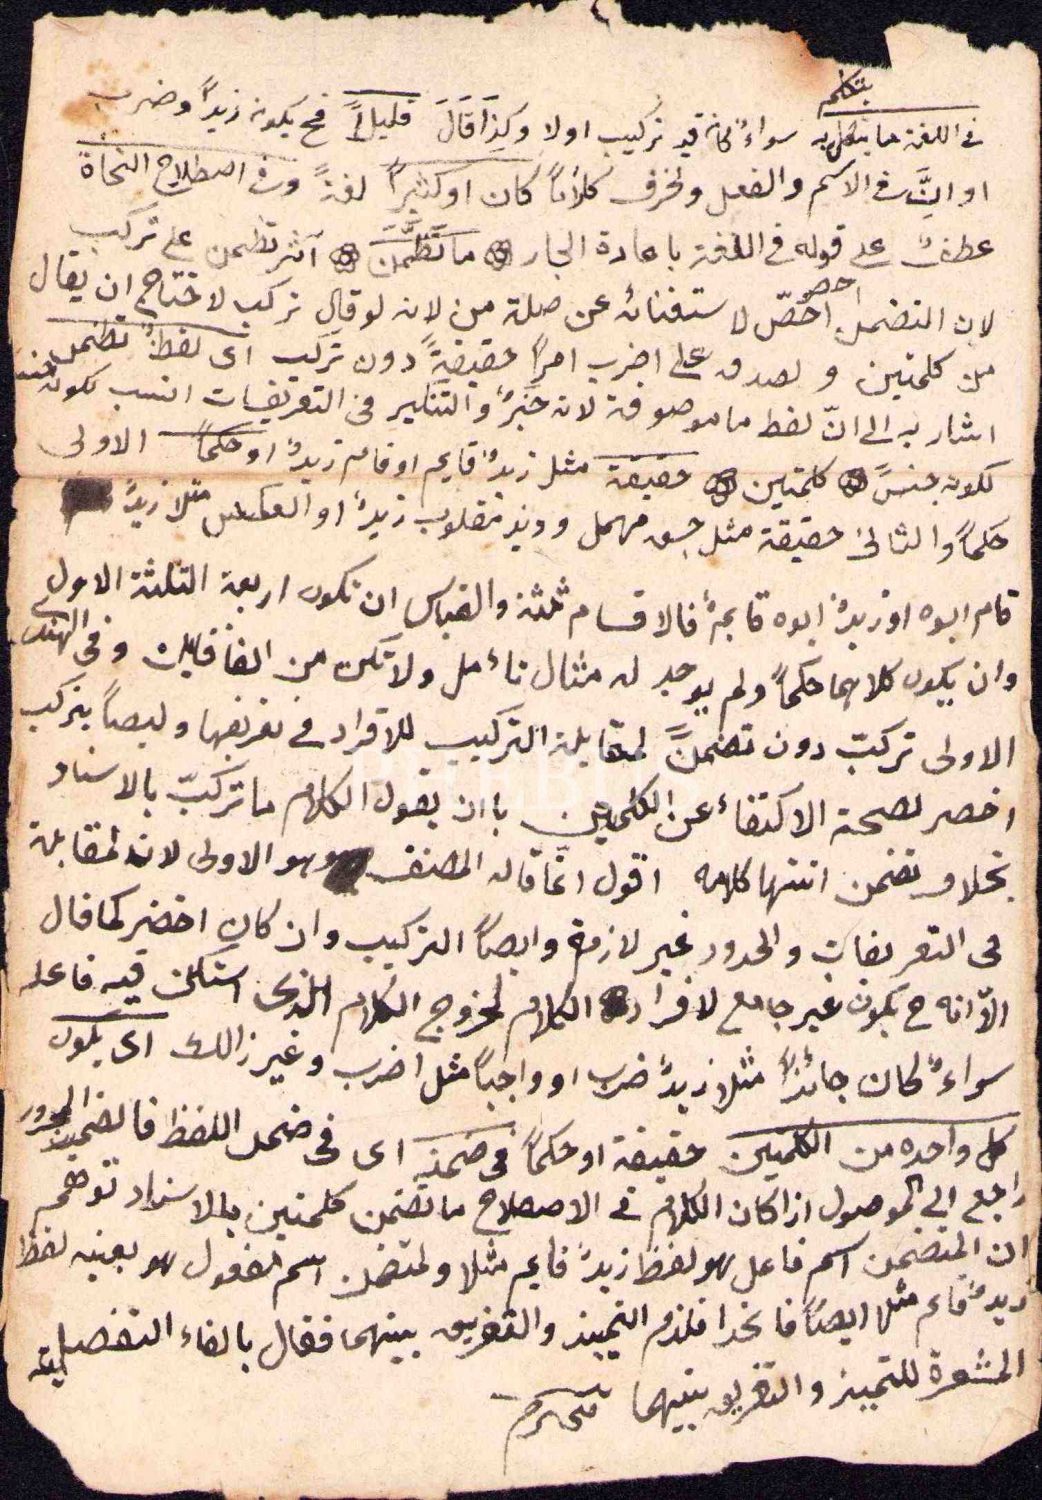 يتكلم
في اللغة ما يتكلم به سواء كان فيه تركيب اولا وكذا قال قليلاً فح يكون زيداً وضرب
او الت في الاسم والفعل والحرف كلاماً كان او كثيراً لغةً وفي اصطلاح النحاة
عطف على قوله في اللغة باعادة الجار ما تضمن آثر تضمن على تركب
لان التضمن اخصّ لاستغنائه عن صلة من لانه لو قال تركب لاحتاج ان يقال
اخصر
من كلمتين ولصدقه على اضرب امراً حقيقةً دون تركب اى لفظٌ تضمن
اشار به الى انّ لفظ ما موصوفة لانه خبرٌ والتنكير في التعريفات انسب لكونه
لكونه جنسً كلمتين حقيقة مثل زيدٌ قايم او قام زيدٌ او حكماً الاولى
حكماً والثانى حقيقة مثل جسق مهمل وديز مقلوب زيدٌ او العكس مثلا زيدٌ
قام ابوه او زيدٌ ابوه قايمٌ فالاقسام ثلثة والقياس ان تكون اربعة الثلثة الاول
وان يكون كلاهما حكماً ولم يوجد له مثال تأمل ولا تكن من الغافلين وفى الهندى
الاولى تركبّ دون تضمنً لمقابلة التركيب للافراد في تعريفها وايضاً يتركب
اخصر لصحة الاكتفاء عن الكلمتين باان يقول الكلام ما تركبّ بالاسناد
بخلاف تضمن انتها كلامه اقول انما قاله المصنف هو الاولى لانه المقابلة
فى التعريفات والحدود غير لازمة وايضاً التركيب وان كان اخصر كما قال
الاّ انه ح يكون غير جامع لافراد الكلام لخروج الكلام الذى استكن فيه فاعله
سواءٌ كان جائزاً مثلا زيدٌ ضرب او واجباً مثل اضرب وغير ذالك اى يكون
كل واحدة من الكلمتين حقيقة او حكماً فى ضمنه اى فى ضمن اللفظ فالضمير المجرور
راجع الى الموصول اذا كان الكلام في الاصطلاح ما تضمن كلمتين بالاسناد توهم
ان المتضمن اسم فاعل هو لفظ زيدٌ قايم مثلا والمتضمن اسم مفعول هو بعينه لفظ
زيدٌ قايم مثلا ايضاً فاتحدا فلزم التمييز والتفريق بينهما فقال بالفاء التفصيلية
المشعرة للتمييز والتفريق بينهما